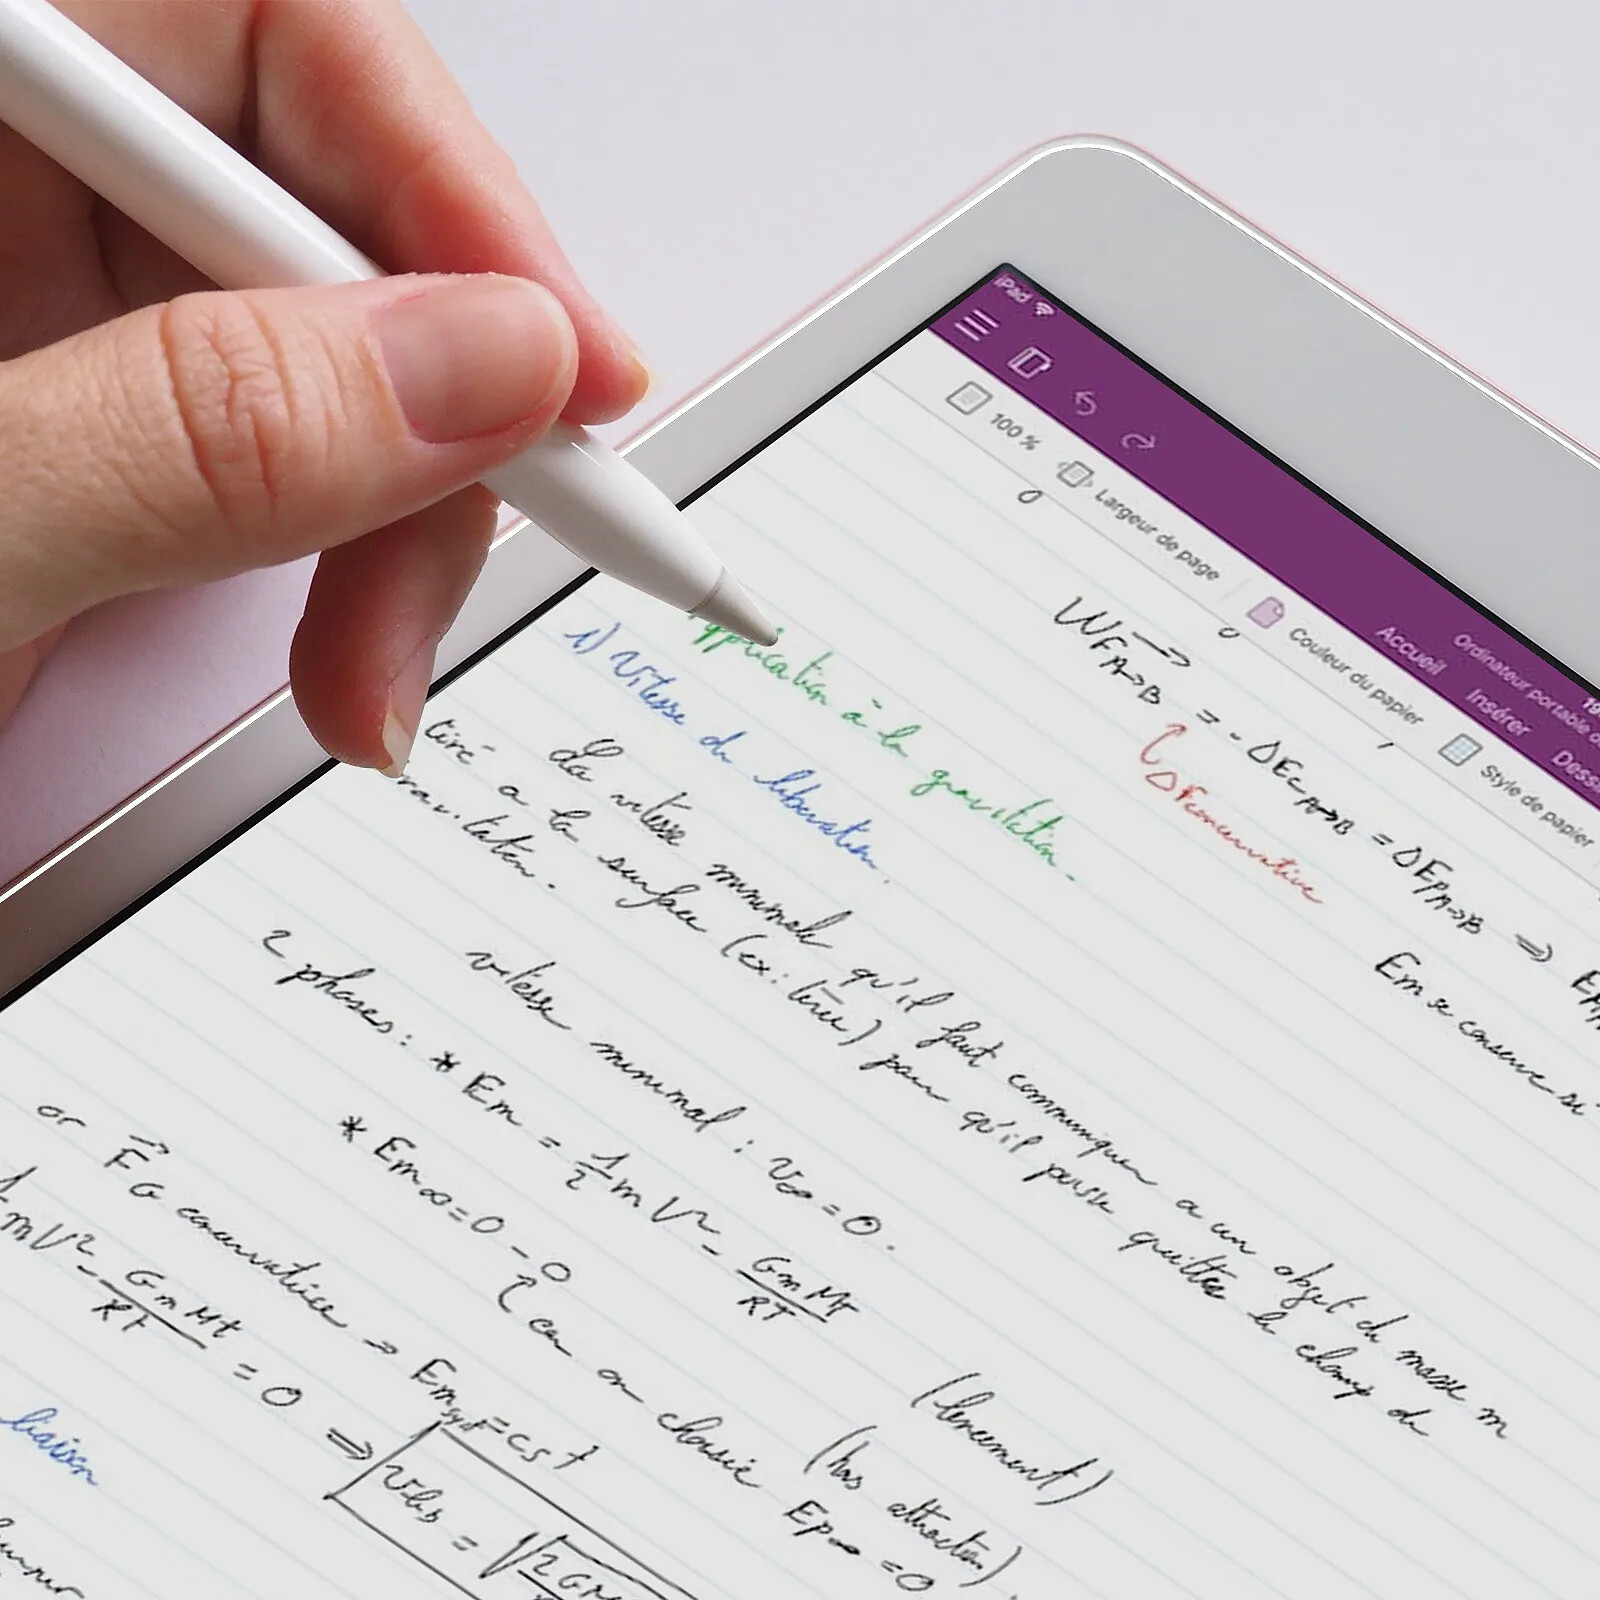 iPad
100 %
Largeur de page
Couleur du papier
Style de papier
Ordinateur portable d
Accueil
Insérer
Dess
W F A→B = - ΔEc A→B = ΔEp A→B ⇒
ΔF conservative
Em se conserve si
Application à la gravitation.
1) Vitesse du libération.
La vitesse minimale qu'il faut communiquer a un objet du masse m
tiré a la surface (ex: terre) pour qu'il puisse quitter le champ du
gravitation.
vitesse minimal : v∞ = 0.
2 phases: * Em = 1/2 m V² - GmMT/RT (lancement)
* Em∞ = 0 - 0 (hors attraction).
car on choisie Ep∞ = 0
or F G conservative → Em syst = cst
mV² - GmMt/RT = 0 ⇒ vlib = √2GM
liaison